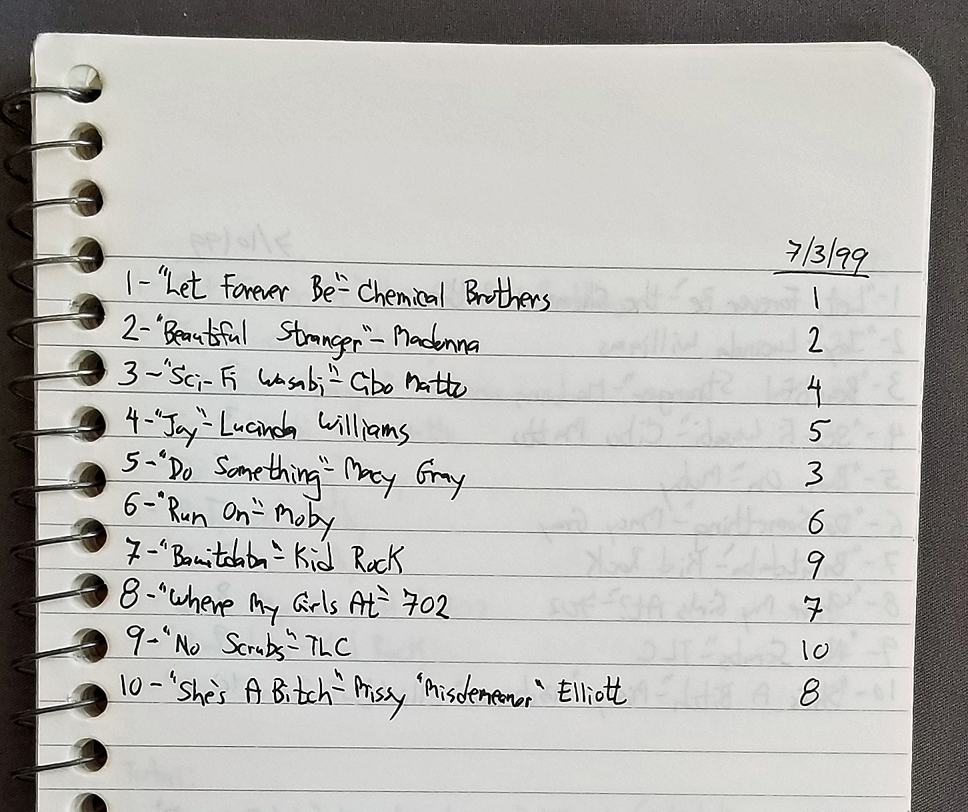 7/3/99
1-"Let Forever Be"- Chemical Brothers 1
2-"Beautiful Stranger"- Madonna 2
3-"Sci-Fi Wasabi"- Cibo Matto 4
4-"Joy"- Lucinda Williams 5
5-"Do Something"- Macy Gray 3
6-"Run On"- Moby 6
7-"Bawitdaba"- Kid Rock 9
8-"Where My Girls At"- 702 7
9-"No Scrubs"- TLC 10
10-"She's A Bitch"- Missy "Misdemeanor" Elliott 8